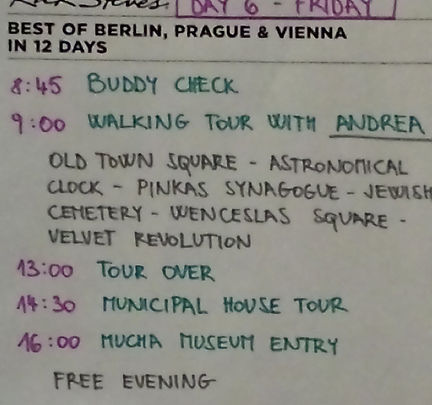 Rick Steves. DAY 6 - FRIDAY
BEST OF BERLIN, PRAGUE & VIENNA
IN 12 DAYS
8:45 BUDDY CHECK
9:00 WALKING TOUR WITH ANDREA
OLD TOWN SQUARE - ASTRONOMICAL
CLOCK - PINKAS SYNAGOGUE - JEWISH
CEMETERY - WENCESLAS SQUARE -
VELVET REVOLUTION
13:00 TOUR OVER
14:30 MUNICIPAL HOUSE TOUR
16:00 MUCHA MUSEUM ENTRY
FREE EVENING